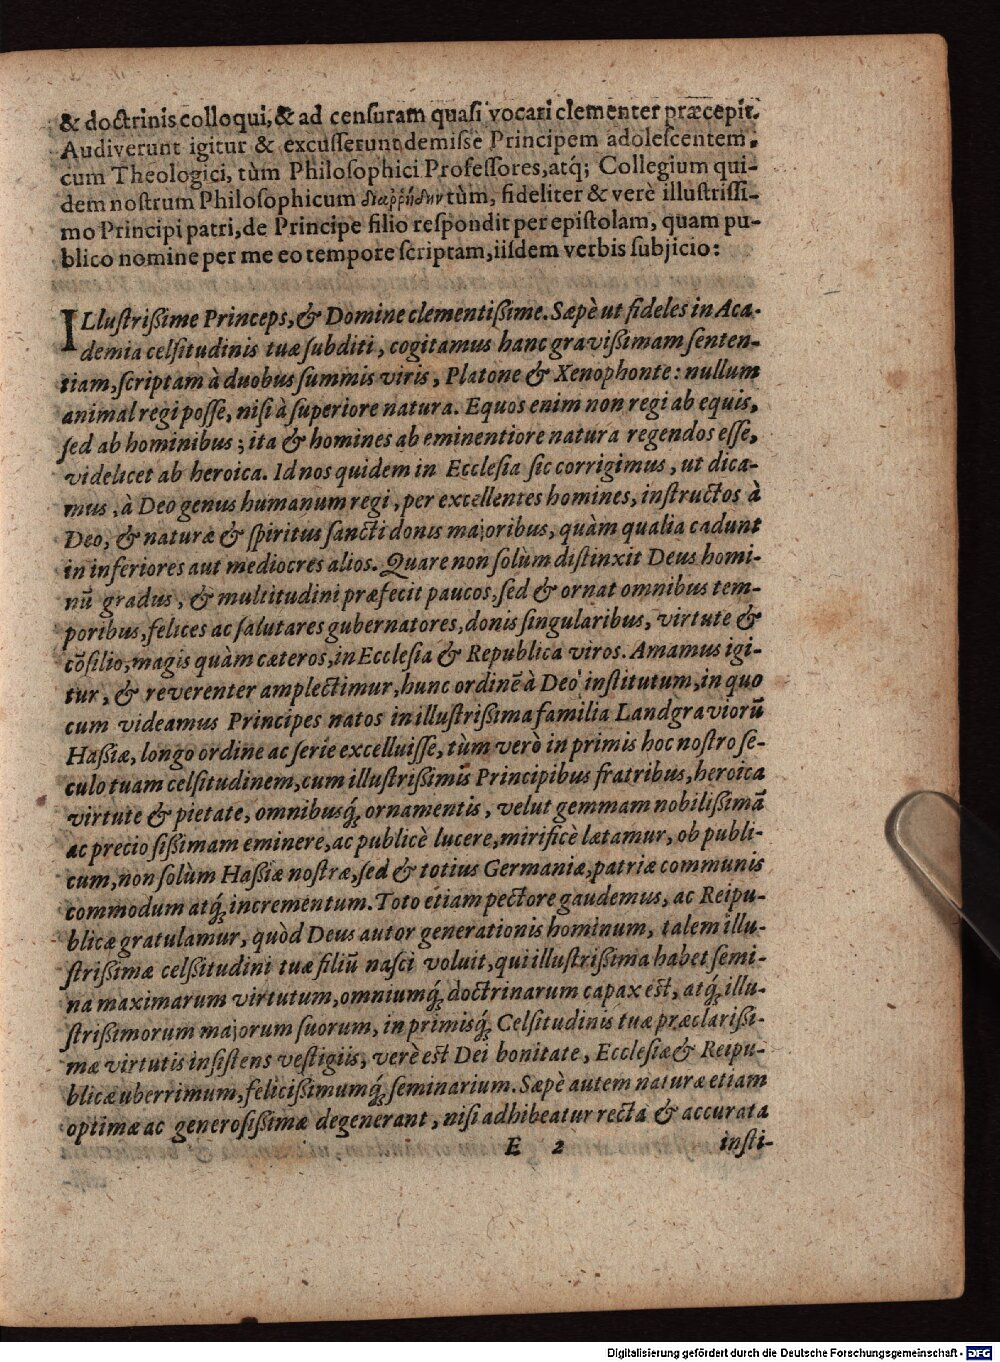 & doctrinis colloqui, & ad censuram quasi vocari clementer præcepit.
Audiverunt igitur & excusserunt demisse Principem adolescentem,
cum Theologici, tùm Philosophici Professores, atq; Collegium qui-
dem nostrum Philosophicum διαῤῥήδην tùm, fideliter & verè illustrissi-
mo Principi patri, de Principe filio respondit per epistolam, quam pu-
blico nomine per me eo tempore scriptam, iisdem verbis subjicio:
ILlustrißime Princeps, & Domine clementißime. Sæpè ut fideles in Aca-
demia celsitudinis tuæ subditi, cogitamus hanc gravißimam senten-
tiam, scriptam à duobus summis viris, Platone & Xenophonte: nullum
animal regi posse, nisi à superiore natura. Equos enim non regi ab equis,
sed ab hominibus; ita & homines ab eminentiore natura regendos esse,
videlicet ab heroica. Id nos quidem in Ecclesia sic corrigimus, ut dica-
mus, à Deo genus humanum regi, per excellentes homines, instructos à
Deo, & naturæ & spiritus sancti donis majoribus, quàm qualia cadunt
in inferiores aut mediocres alios. Quare non solùm distinxit Deus homi-
nū gradus, & multitudini præfecit paucos, sed & ornat omnibus tem-
poribus, felices ac salutares gubernatores, donis singularibus, virtute &
cōsilio, magis quàm cæteros, in Ecclesia & Republica viros. Amamus igi-
tur, & reverenter amplectimur, hunc ordinē à Deo institutum, in quo
cum videamus Principes natos in illustrißima familia Landgraviorū
Haßiæ, longo ordine ac serie excelluisse, tùm verò in primis hoc nostro se-
culo tuam celsitudinem, cum illustrißimis Principibus fratribus, heroica
virtute & pietate, omnibusq́; ornamentis, velut gemmam nobilißimā
ac preciosißimam eminere, ac publicè lucere, mirificè lætamur, ob publi-
cum, non solùm Haßiæ nostræ, sed & totius Germaniæ, patriæ communis
commodum atq́; incrementum. Toto etiam pectore gaudemus, ac Reipu-
blicæ gratulamur, quòd Deus autor generationis hominum, talem illu-
strißimæ celßitudini tuæ filiū nasci voluit, qui illustrißima habet semi-
na maximarum virtutum, omniumq́; doctrinarum capax est, atq́; illu-
strißimorum majorum suorum, in primisq́; Celsitudinis tuæ præclarißi-
mæ virtutis insistens vestigiis, verè est Dei bonitate, Ecclesiæ & Reipu-
blicæ uberrimum, felicißimumq́; seminarium. Sæpè autem naturæ etiam
optimæ ac generosißimæ degenerant, nisi adhibeatur recta & accurata
E 2 insti-
Digitalisierung gefördert durch die Deutsche Forschungsgemeinschaft - DFG